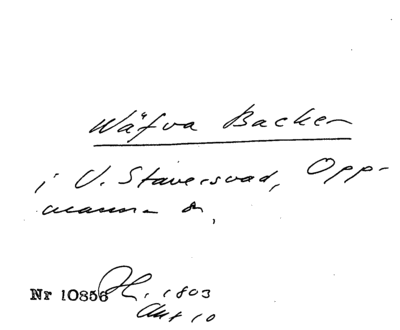 Wäfva Backen
i V. Staversvad, Opp-
manna sn,
Nr 10856 Hl. 1803
Akt 10